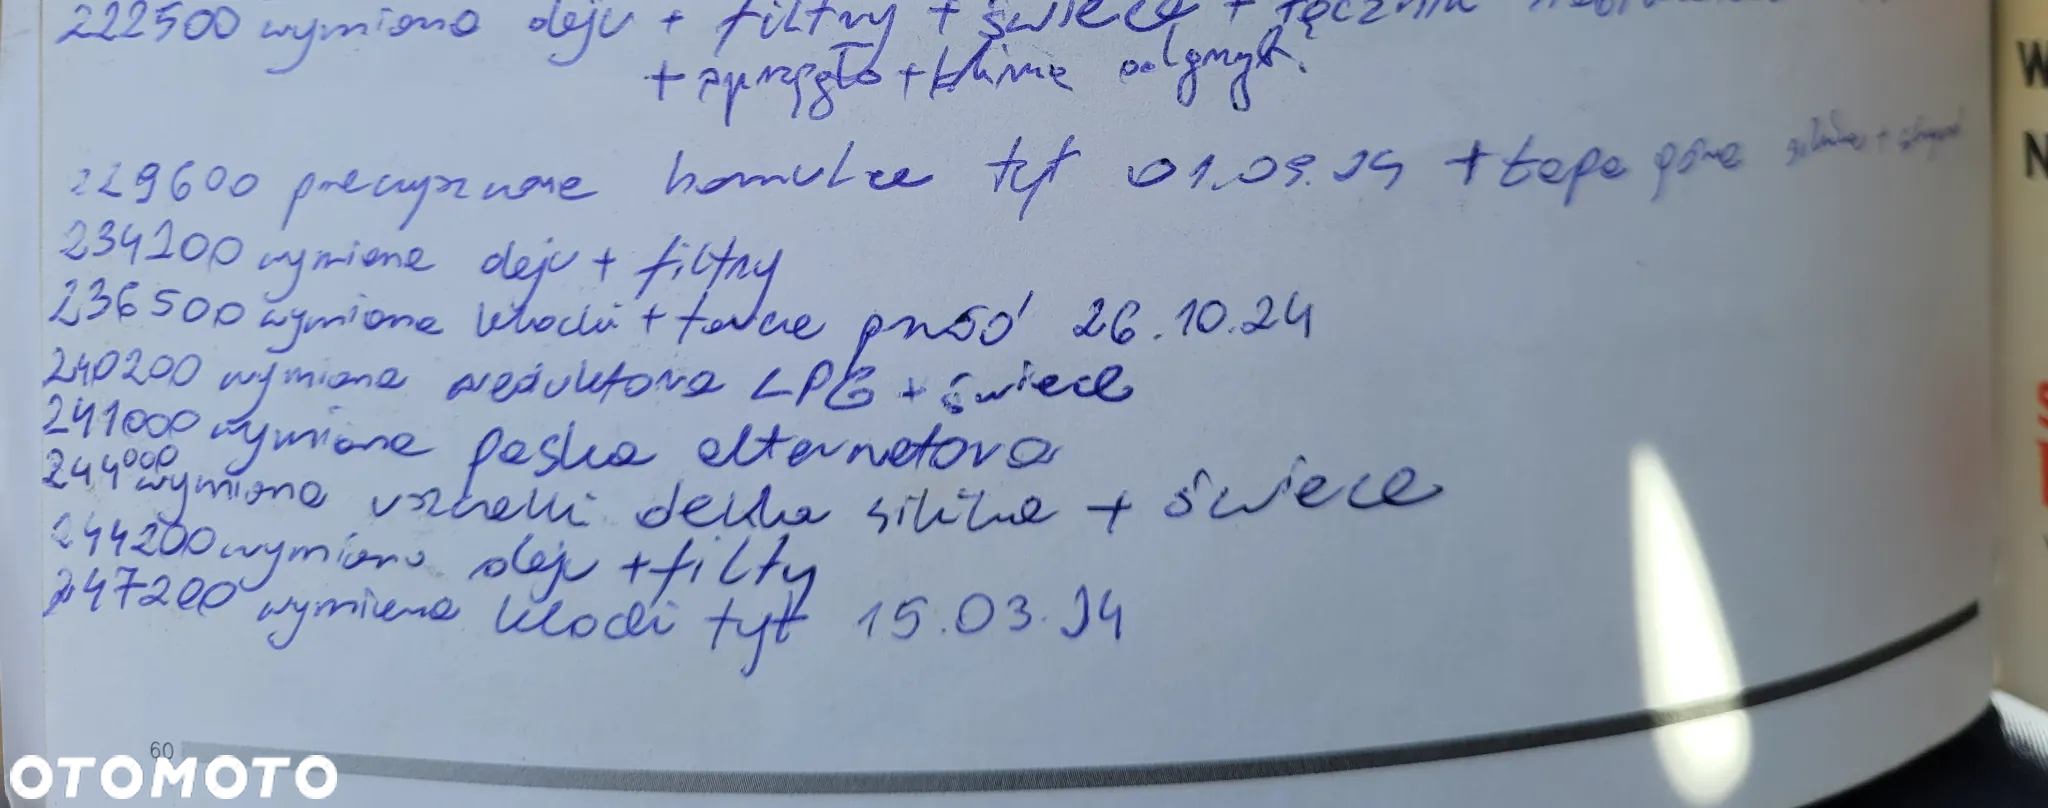 222500 wymiana oleju + filtry + świece + łącznik
+ sprzęgło + klima odgrzyb.
229600 przeczyszczone hamulce tył 01.09.24 + łapa górna silnika +
234200 wymiana oleju + filtry
236500 wymiana klocki + tarcze przód 26.10.24
240200 wymiana reduktora LPG + świece
241000 wymiana paska alternatora
244000 wymiana uszczelki dekla silnika + świece
244200 wymiana oleju + filty
247200 wymiana klocki tył 15.03.24
60
OTOMOTO
W
N
S